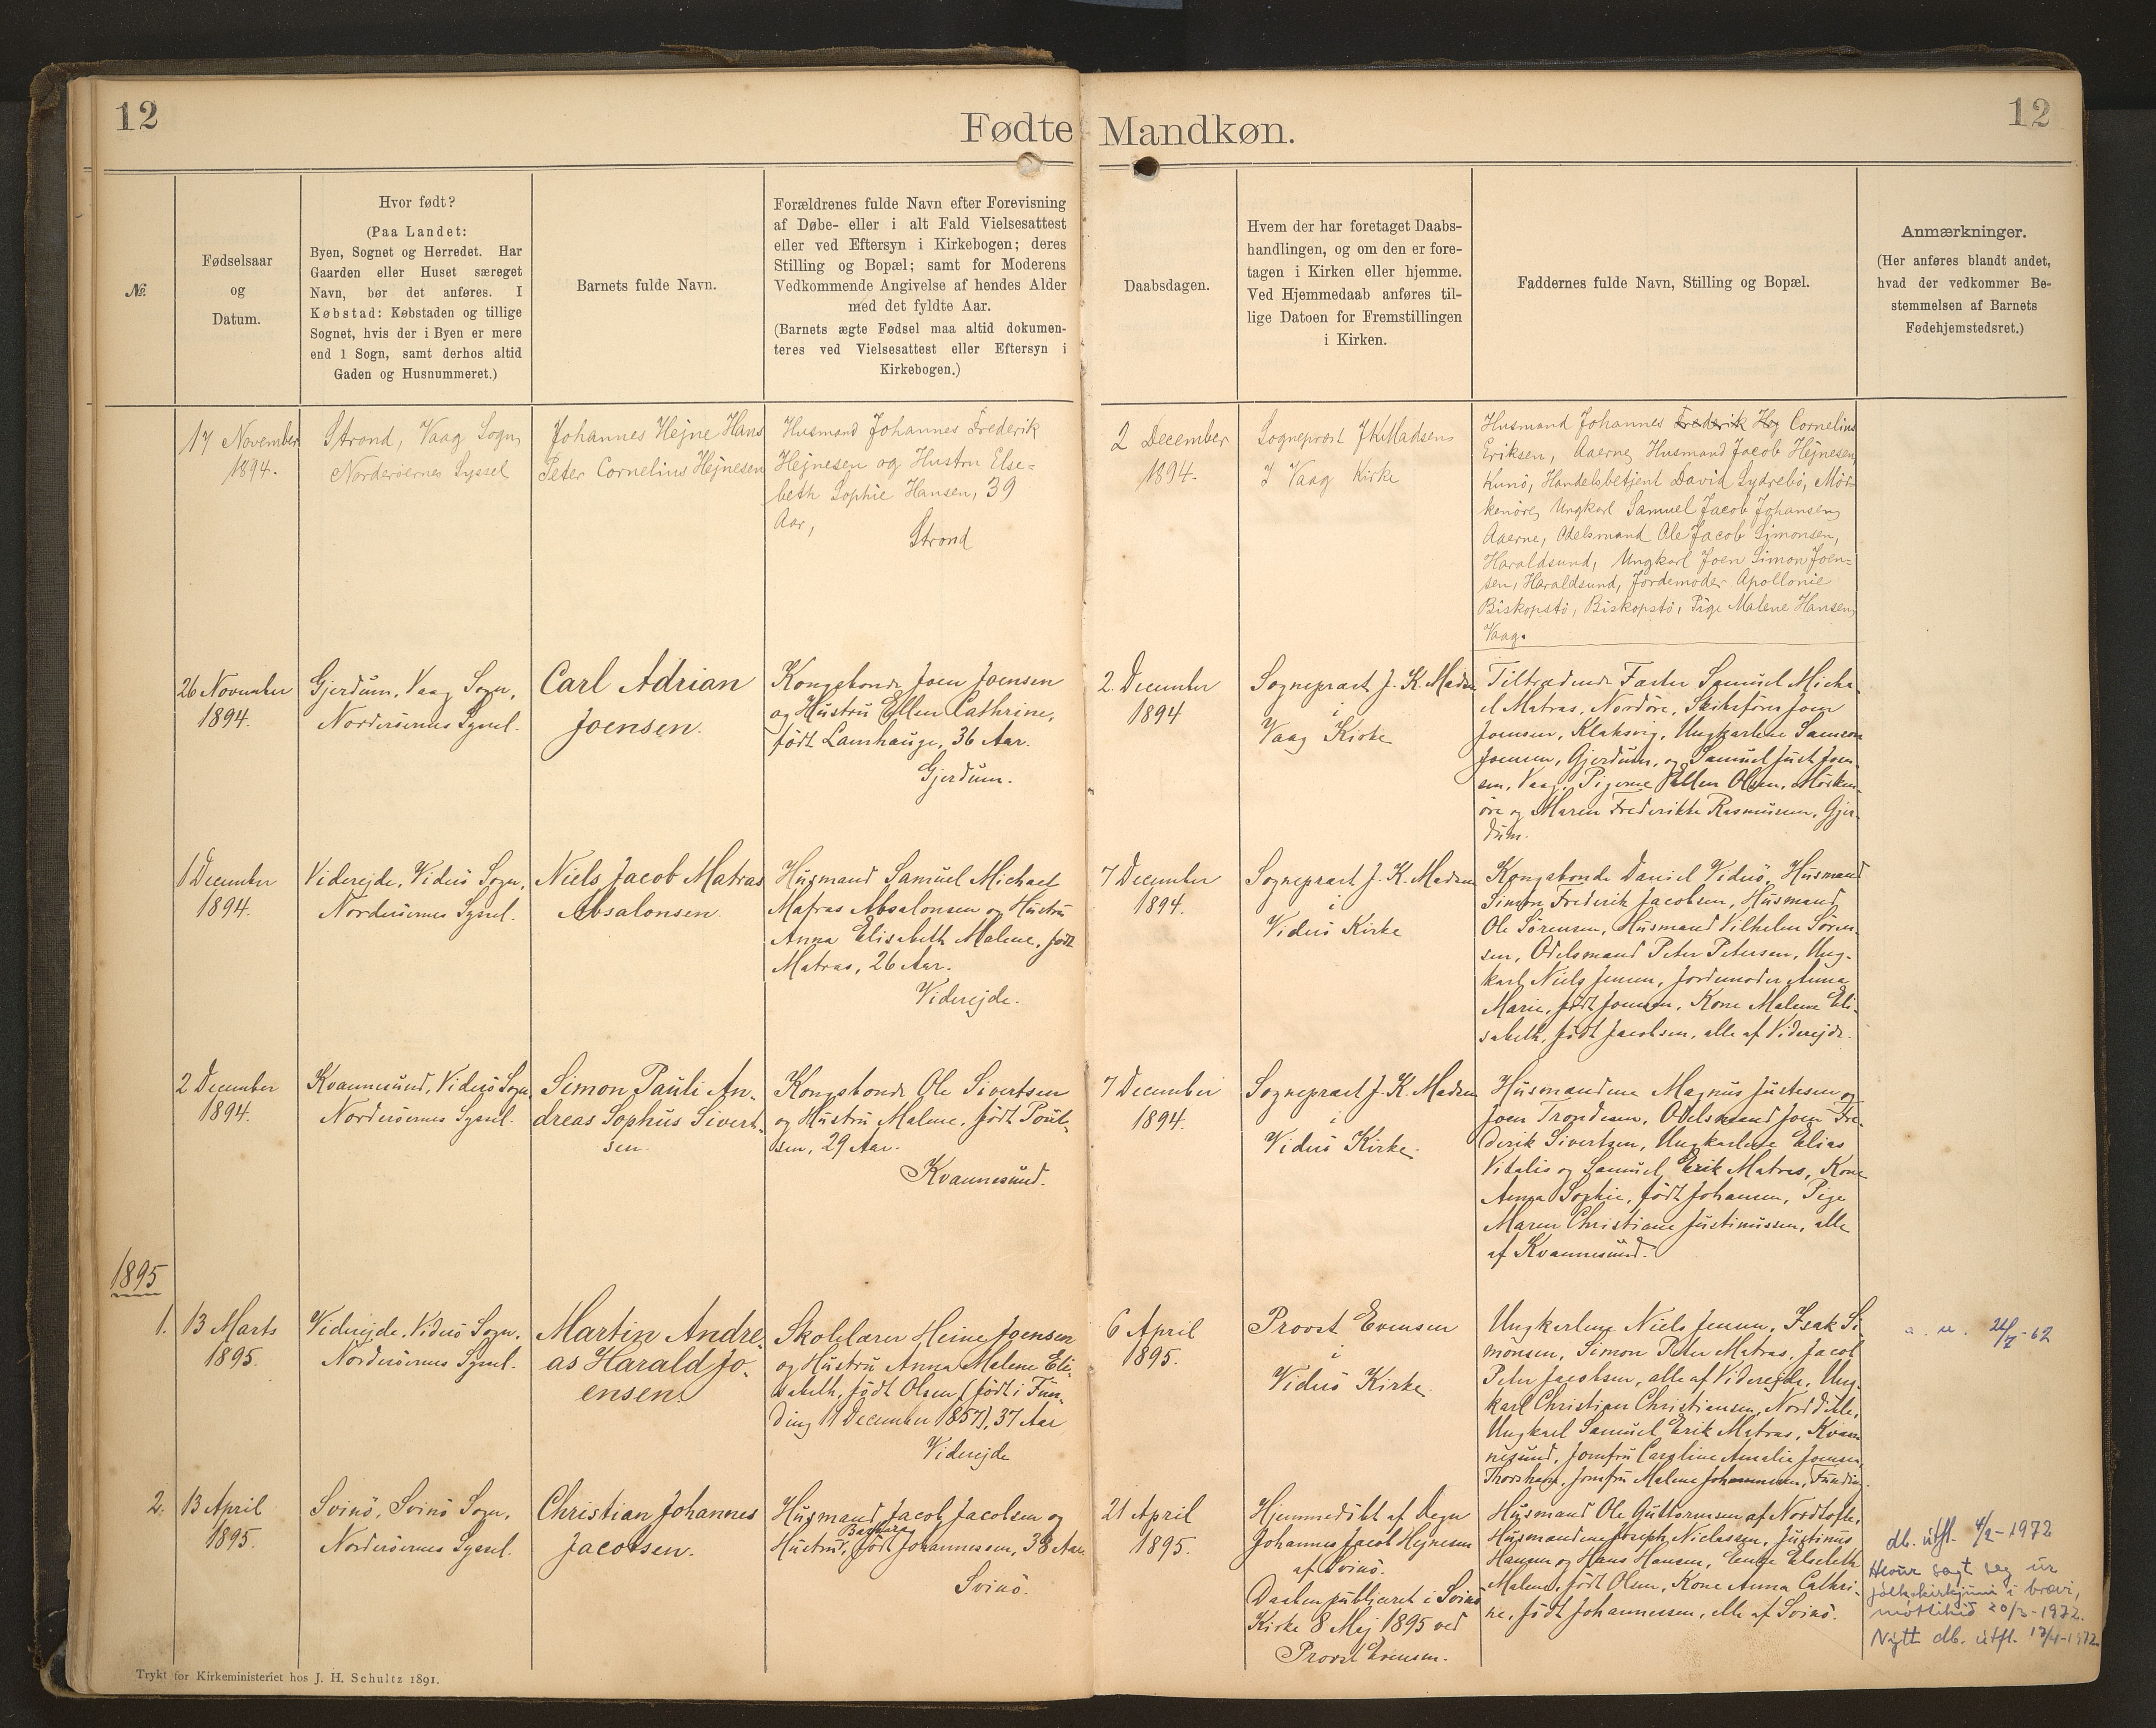 12
Fødte Mandkøn.
12
№
Fødselsaar
og
Datum.
Hvor født?
(Paa Landet:
Byen, Sognet og Herredet. Har
Gaarden eller Huset særeget
Navn, bør det anføres. I
Købstad: Købstaden og tillige
Sognet, hvis der i Byen er mere
end 1 Sogn, samt derhos altid
Gaden og Husnummeret.)
Barnets fulde Navn.
Forældrenes fulde Navn efter Forevisning
af Døbe- eller i alt Fald Vielsesattest
eller ved Eftersyn i Kirkebogen; deres
Stilling og Bopæl; samt for Moderens
Vedkommende Angivelse af hendes Alder
med det fyldte Aar.
(Barnets ægte Fødsel maa altid dokumen-
teres ved Vielsesattest eller Eftersyn i
Kirkebogen.)
Daabsdagen.
Hvem der har foretaget Daabs-
handlingen, og om den er fore-
tagen i Kirken eller hjemme.
Ved Hjemmedaab anføres til-
lige Datoen for Fremstillingen
i Kirken.
Faddernes fulde Navn, Stilling og Bopæl.
Anmærkninger.
(Her anføres blandt andet,
hvad der vedkommer Be-
stemmelsen af Barnets
Fødehjemstedsret.)
17 November
1894.
Strond, Vaag Sogn,
Norderöernes Syssel
Johannes Hejne Hans
Peter Cornelius Hejnesen
Husmand Johannes Frederik
Hejnesen og Hustru Else=
beth Sophie Hansen, 39
Aar,
Strond
2 December
1894.
Sognepræst J K Madsen
I Vaag Kirke
Husmand Johannes Frederik Hej Cornelius
Eriksen, Aaerne, Husmand Jacob Hejnesen,
Kunö, Handelsbetjent David Sydrebö, Mör=
kenöre, Ungkarl Samuel Jacob Johansen,
Aaerne, Odelsmand Ole Jacob Simonsen,
Haraldsund, Ungkarl Joen Simon Joen=
sen, Haraldsund, Jordemoder Apollonie
Biskopstö, Biskopstö, Pige Malene Hansen,
Vaag.
26 November
1894.
Gjerdum, Vaag Sogn,
Norderöernes Syssel.
Carl Adrian
Joensen.
Kongsbonde Joen Joensen
og Hustru Ellen Cathrine,
født Lamhauge, 36 Aar.
Gjerdum.
2. December
1894
Sognepræst J. K. Madsen
i
Vaag Kirke
Tiltrædende Fæster Samuel Micha-
el Matras, Nordöre, Skibsförer Joen
Joensen, Klaksvig, Ungkarlene Samson
Joensen, Gjerdum, og Samuel Just Joen-
sen, Vaag, Pigerne Ellen Olsen, Mörken-
öre og Maren Frederikke Rasmussen, Gjer-
dum.
1 December
1894.
Viderejde, Viderö Sogn,
Norderöernes Syssel.
Niels Jacob Matras
Absalonsen.
Husmand Samuel Michael
Matras Absalonsen og Hustru
Anna Elisabeth Malene, født
Matras, 26 Aar.
Viderejde.
7 December
1894.
Sognepræst J. K. Madsen
i
Viderö Kirke
Kongsbonde Daniel Viderö, Husmand
Simon Frederik Jacobsen, Husmand
Ole Sörensen, Husmand Vilhelm Sören-
sen, Odelsmand Peter Petersen, Ung-
karl Niels Jensen, Jordemoder Anna
Marie, født Joensen, Kone Malene Eli-
sabeth, født Jacobsen, alle af Viderejde.
2 December
1894.
Kvannesund, Viderö Sogn
Norderöernes Syssel.
Simon Pauli An-
dreas Sophus Sivert-
sen.
Kongsbonde Ole Sivertsen
og Hustru Malene, født Poul-
sen, 29 Aar.
Kvannesund.
7 December
1894.
Sognepræst J. K. Madsen
i
Viderö Kirke.
Husmændene Magnus Justesen og
Joen Trondesen, Odelsmand Joen Fre-
derik Sivertsen, Ungkarlene Elias
Vitalis og Samuel Erik Matras, Kone
Anna Sophie, født Johansen, Pige
Maren Christiane Justinussen, alle
af Kvannesund.
1895
1.
13 Marts
1895.
Viderejde, Viderö Sogn,
Norderöernes Syssel.
Martin Andre-
as Harald Jo-
ensen.
Skolelærer Heine Joensen
og Hustru Anna Malene Eli-
sabeth, født Olsen (født i Fun-
ding 11 December 1857), 37 Aar
Viderejde
6 April
1895.
Provst Evensen
i
Viderö Kirke.
Ungkarlene Niels Jensen, Isak Si-
monsen, Simon Peter Matras, Jacob
Peter Jacobsen, alle af Viderejde, Ung-
karl Christian Christiansen, Norddeble,
Ungkarl Samuel Erik Matras, Kvan-
nesund, Jomfru Caroline Amalie Joensen,
Thorshavn, Jomfru Malene Johannesen, Funding.
a. u. -62
2.
13 April
1895.
Svinö, Svinö Sogn,
Norderöernes Syssel.
Christian Johannes
Jacobsen.
Husmand Jacob Jacobsen og
Barbara
Hustru, født Johannessen, 38 Aar.
Svinö.
21 April
1895.
Hjemmedöbt af Degn
Johannes Jacob Hejnesen
af Svinö.
Daaben publiceret i Svinö
Kirke 8 Maj 1895 ved
Provst Evensen.
Husmand Ole Guttormsen af Nordtofte,
Husmændene Joseph Niclassen, Justinus
Hansen og Hans Hansen, Enke Elsebeth
Malene, født Olsen, Kone Anna Cathri-
ne, født Johannessen, alle af Svinö.
db. útfl. 4/2-1972
Hevur sagt seg úr
fólkakirkjuni í brævi,
móttikið 20/3-1972.
Nýtt db. útfl. 17/4-1972
Trykt for Kirkeministeriet hos J. H. Schultz 1891.